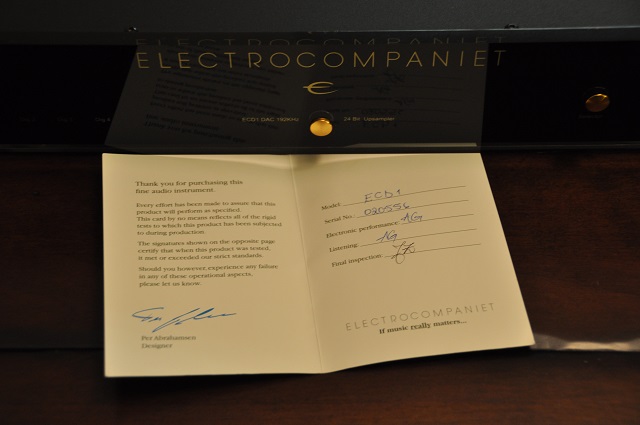 ELECTROCOMPANIET
ECD1 DAC 192KHz 24 Bit Upsampler
Thank you for purchasing this
fine audio instrument.
Every effort has been made to assure that this
product will perform as specified.
This card by no means reflects all of the rigid
tests to which this product has been subjected
to during production.
The signatures shown on the opposite page
certify that when this product was tested,
it met or exceeded our strict standards.
Should you however experience any failure
in any of these operational aspects,
please let us know.
Per Abrahamsen
Designer
Model: ECD1
Serial No.: 020556
Electronic performance: AG
Listening: AG
Final inspection:
ELECTROCOMPANIET
If music really matters...